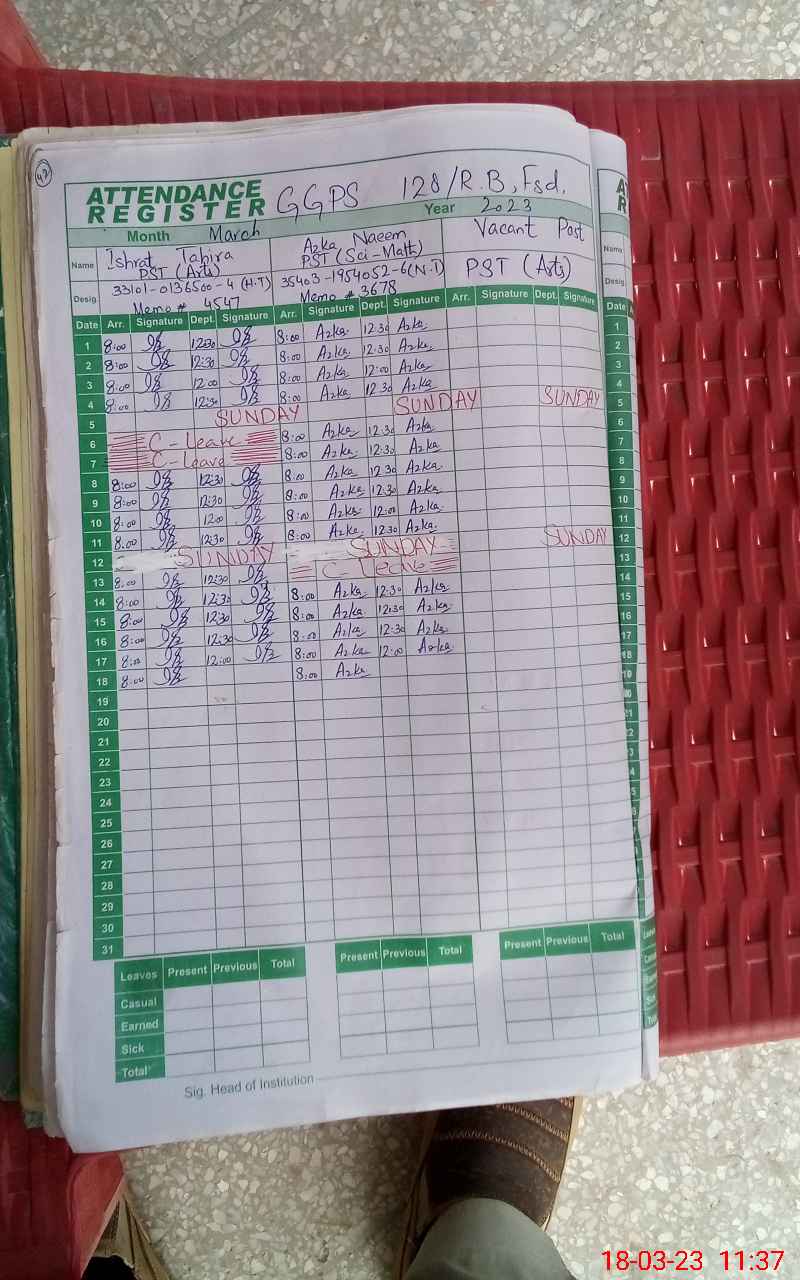 42
ATTENDANCE REGISTER GGPS 128/R.B, Fsd.
Month March Year 2023
Name Ishrat Tahira Azka Naeem Vacant Post
PST (Arts) PST (Sci-Math) PST (Arts)
Desig. 33101-0136500-4 (H.T) 35403-1954052-6 (N.T)
Memo # 4547 Memo # 3678
Date Arr. Signature Dept. Signature Arr. Signature Dept. Signature Arr. Signature Dept. Signature
1 8:00 12:30 8:00 Azka 12:30 Azka
2 8:00 12:30 8:00 Azka 12:30 Azka
3 8:00 12:00 8:00 Azka 12:00 Azka
4 8:00 12:30 8:00 Azka 12:30 Azka
5 SUNDAY SUNDAY SUNDAY
6 C-Leave 8:00 Azka 12:30 Azka
7 C-Leave 8:00 Azka 12:30 Azka
8 8:00 12:30 8:00 Azka 12:30 Azka
9 8:00 12:30 8:00 Azka 12:30 Azka
10 8:00 12:00 8:00 Azka 12:00 Azka
11 8:00 12:30 8:00 Azka 12:30 Azka
12 SUNDAY SUNDAY SUNDAY
13 8:00 12:30 C-Leave
14 8:00 12:30 8:00 Azka 12:30 Azka
15 8:00 12:30 8:00 Azka 12:30 Azka
16 8:00 12:30 8:00 Azka 12:30 Azka
17 8:00 12:00 8:00 Azka 12:00 Azka
18 8:00 8:00 Azka
19
20
21
22
23
24
25
26
27
28
29
30
31
Leaves Present Previous Total Present Previous Total Present Previous Total
Casual
Earned
Sick
Total
Sig. Head of Institution
18-03-23 11:37